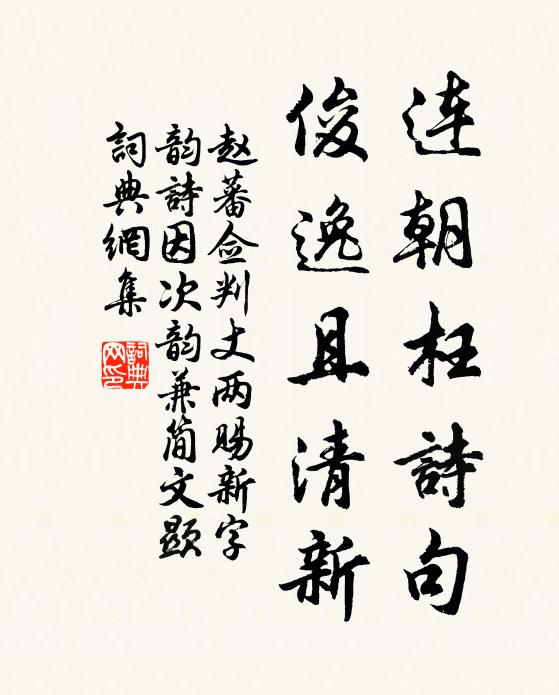 连朝枉詩句
俊逸且清新
赵蕃佥判丈两赐新字
韵詩因次韵兼简文顯
詞典網集
詞典
网印